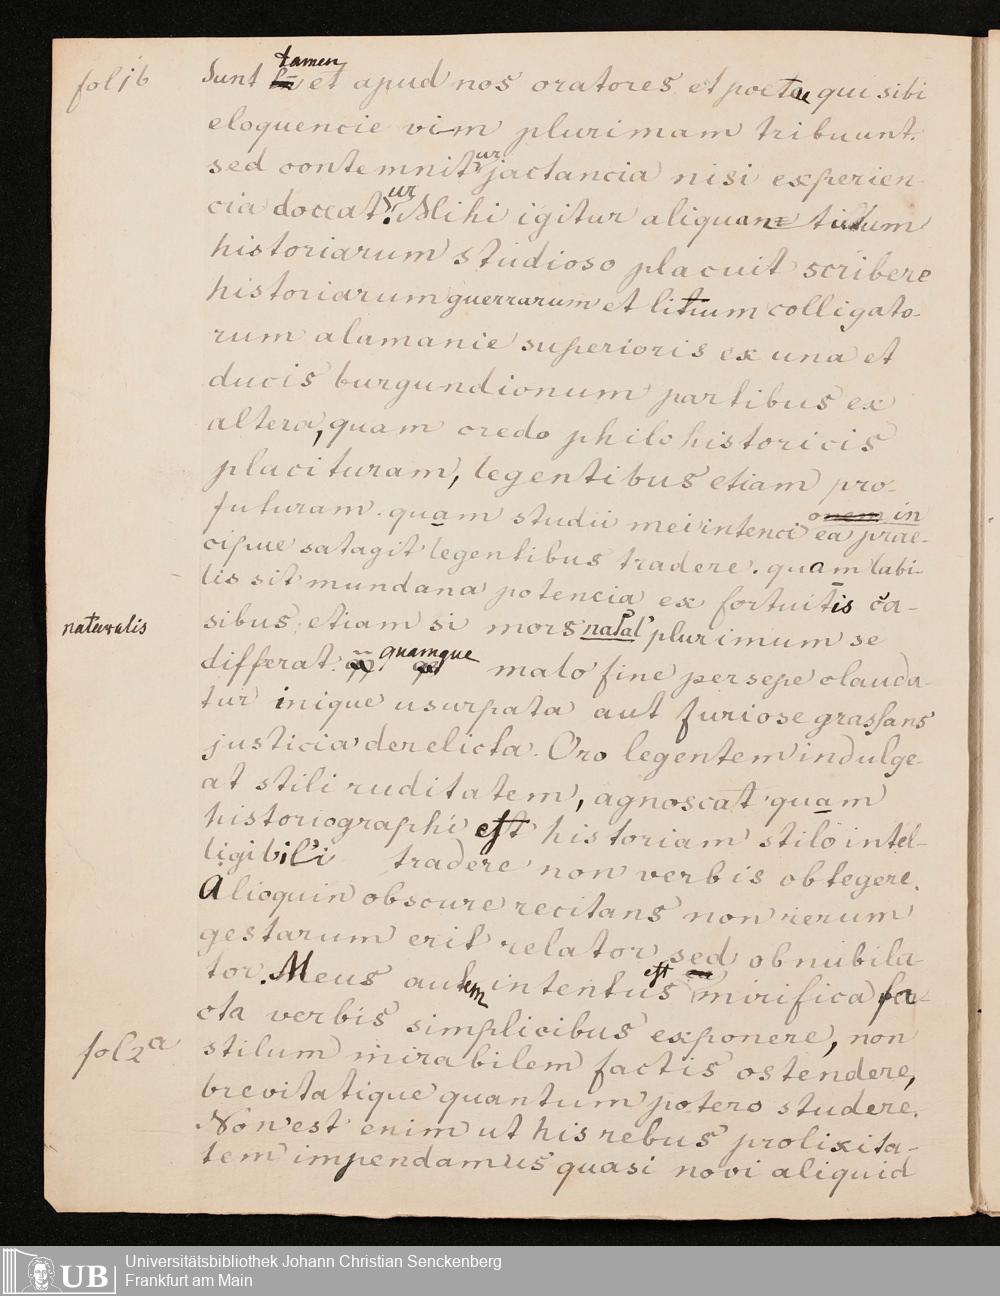 fol 1b
tamen
Sunt et apud nos oratores et poetae qui sibi
eloquencie vim plurimam tribuunt.
sed contemnitur jactancia nisi experien-
cia doceatur. Mihi igitur aliquan= tulum
historiarum studioso placuit scribere
historiarum guerrarum et litium colligato-
rum alamanie superioris ex una et
ducis burgundionum partibus ex
altera, quam credo philohistoricis
placituram, legentibus etiam pro-
futuram. quam studii mei intencio in
ea prae-
cipue satagit legentibus tradere. quam labi-
lis sit mundana potencia ex fortuitis ca-
sibus, etiam si mors natal' plurimum se
naturalis
differat. quamque malo fine persepe clauda-
tur inique usurpata aut furiose grassans
justicia derelicta. Oro legentem indulge-
at stili ruditatem, agnoscat quam
historiographi est historiam stilo intel-
ligibili tradere non verbis obtegere.
Alioquin obscure recitans non rerum
gestarum erit relator sed obnubila-
tor. Meus autem intentus est mirifica fa-
cta verbis simplicibus exponere, non
fol 2a
stilum mirabilem factis ostendere,
brevitatique quantum potero studere.
Non est enim ut his rebus prolixita-
tem impendamus quasi novi aliquid
UB
Universitätsbibliothek Johann Christian Senckenberg
Frankfurt am Main